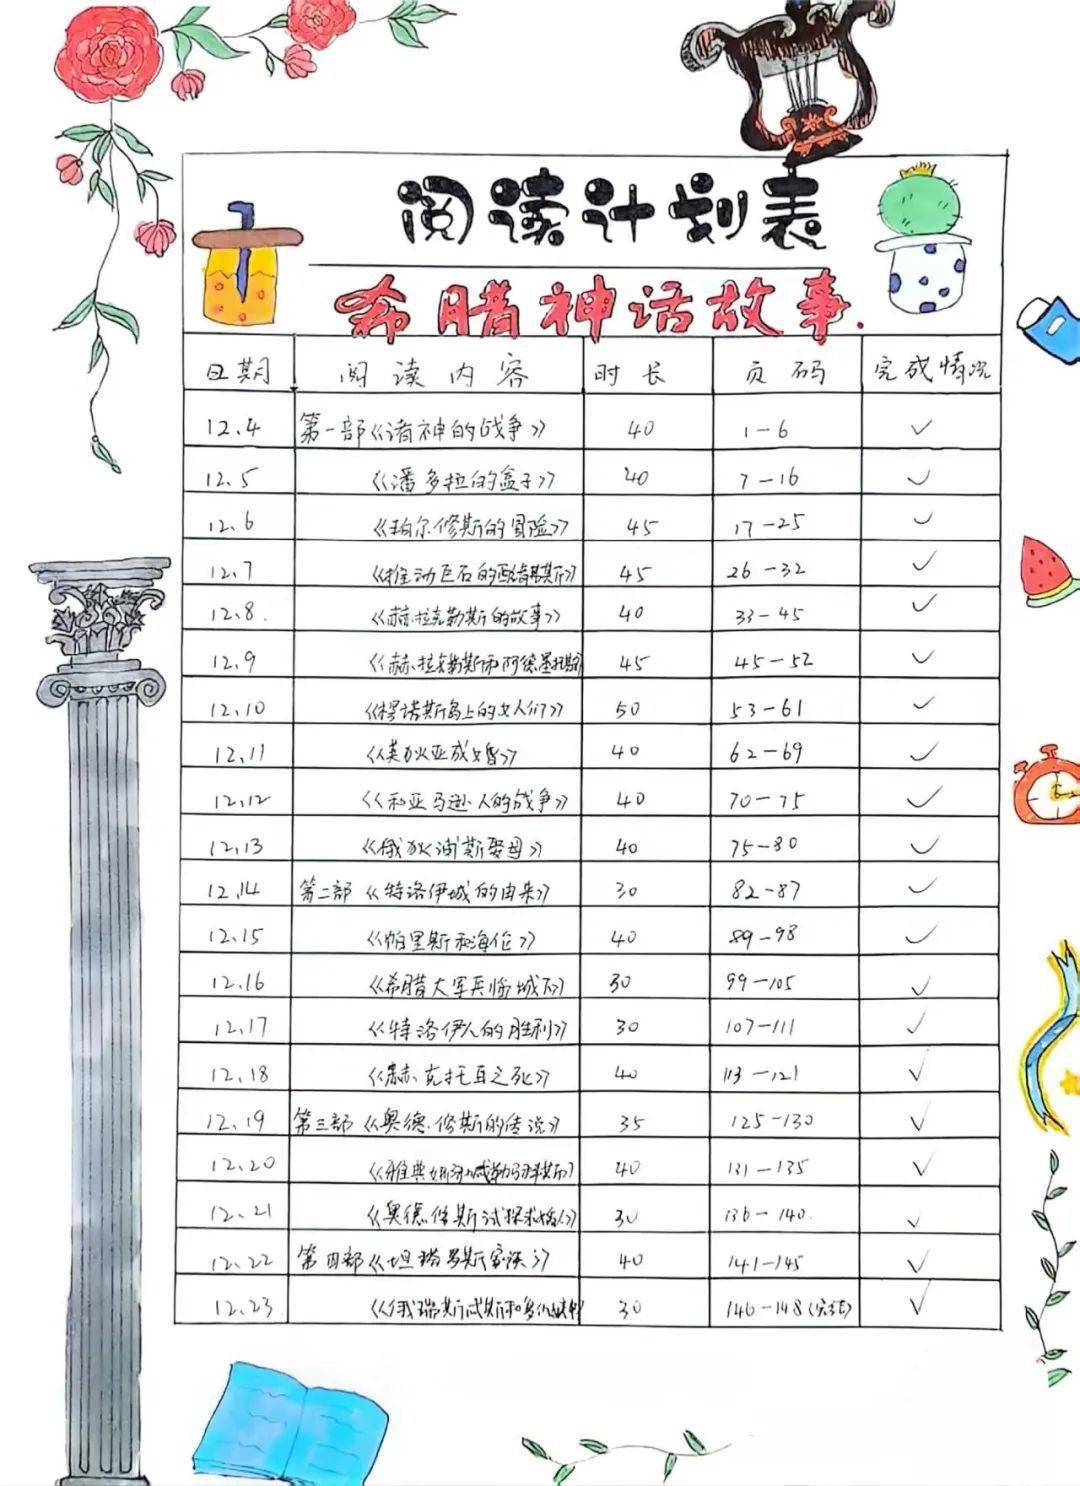 阅读计划表
希腊神话故事.
日期 阅读内容 时长 页码 完成情况
12.4 第一部《诸神的战争》 40 1-6 ✓
12.5 《潘多拉的盒子》 40 7-16 ✓
12.6 《珀尔修斯的冒险》 45 17-25 ✓
12.7 《推动巨石的西绪弗斯》 45 26-32 ✓
12.8. 《赫拉克勒斯的故事》 40 33-45 ✓
12.9 《赫拉克勒斯和阿德墨托斯》 45 45-52 ✓
12.10 《楞诺斯岛上的女人们》 50 53-61 ✓
12.11 《美狄亚成婚》 40 62-69 ✓
12.12 《和亚马逊人的战争》 40 70-75 ✓
12.13 《俄狄浦斯娶母》 40 75-80 ✓
12.14 第二部《特洛伊城的由来》 30 82-87 ✓
12.15 《帕里斯和海伦》 40 89-98 ✓
12.16 《希腊大军兵临城下》 30 99-105 ✓
12.17 《特洛伊人的胜利》 30 107-111 ✓
12.18 《赫克托耳之死》 40 113-121 ✓
12.19 第三部《奥德修斯的传说》 35 125-130 ✓
12.20 《雅典娜 40 131-135 ✓
12.21 《奥德修斯试探求婚人》 30 136-140. ✓
12.22 第四部《坦塔罗斯家族》 40 141-145 ✓
12.23 《俄瑞斯忒斯和复仇女神》 30 146-148(完结) ✓